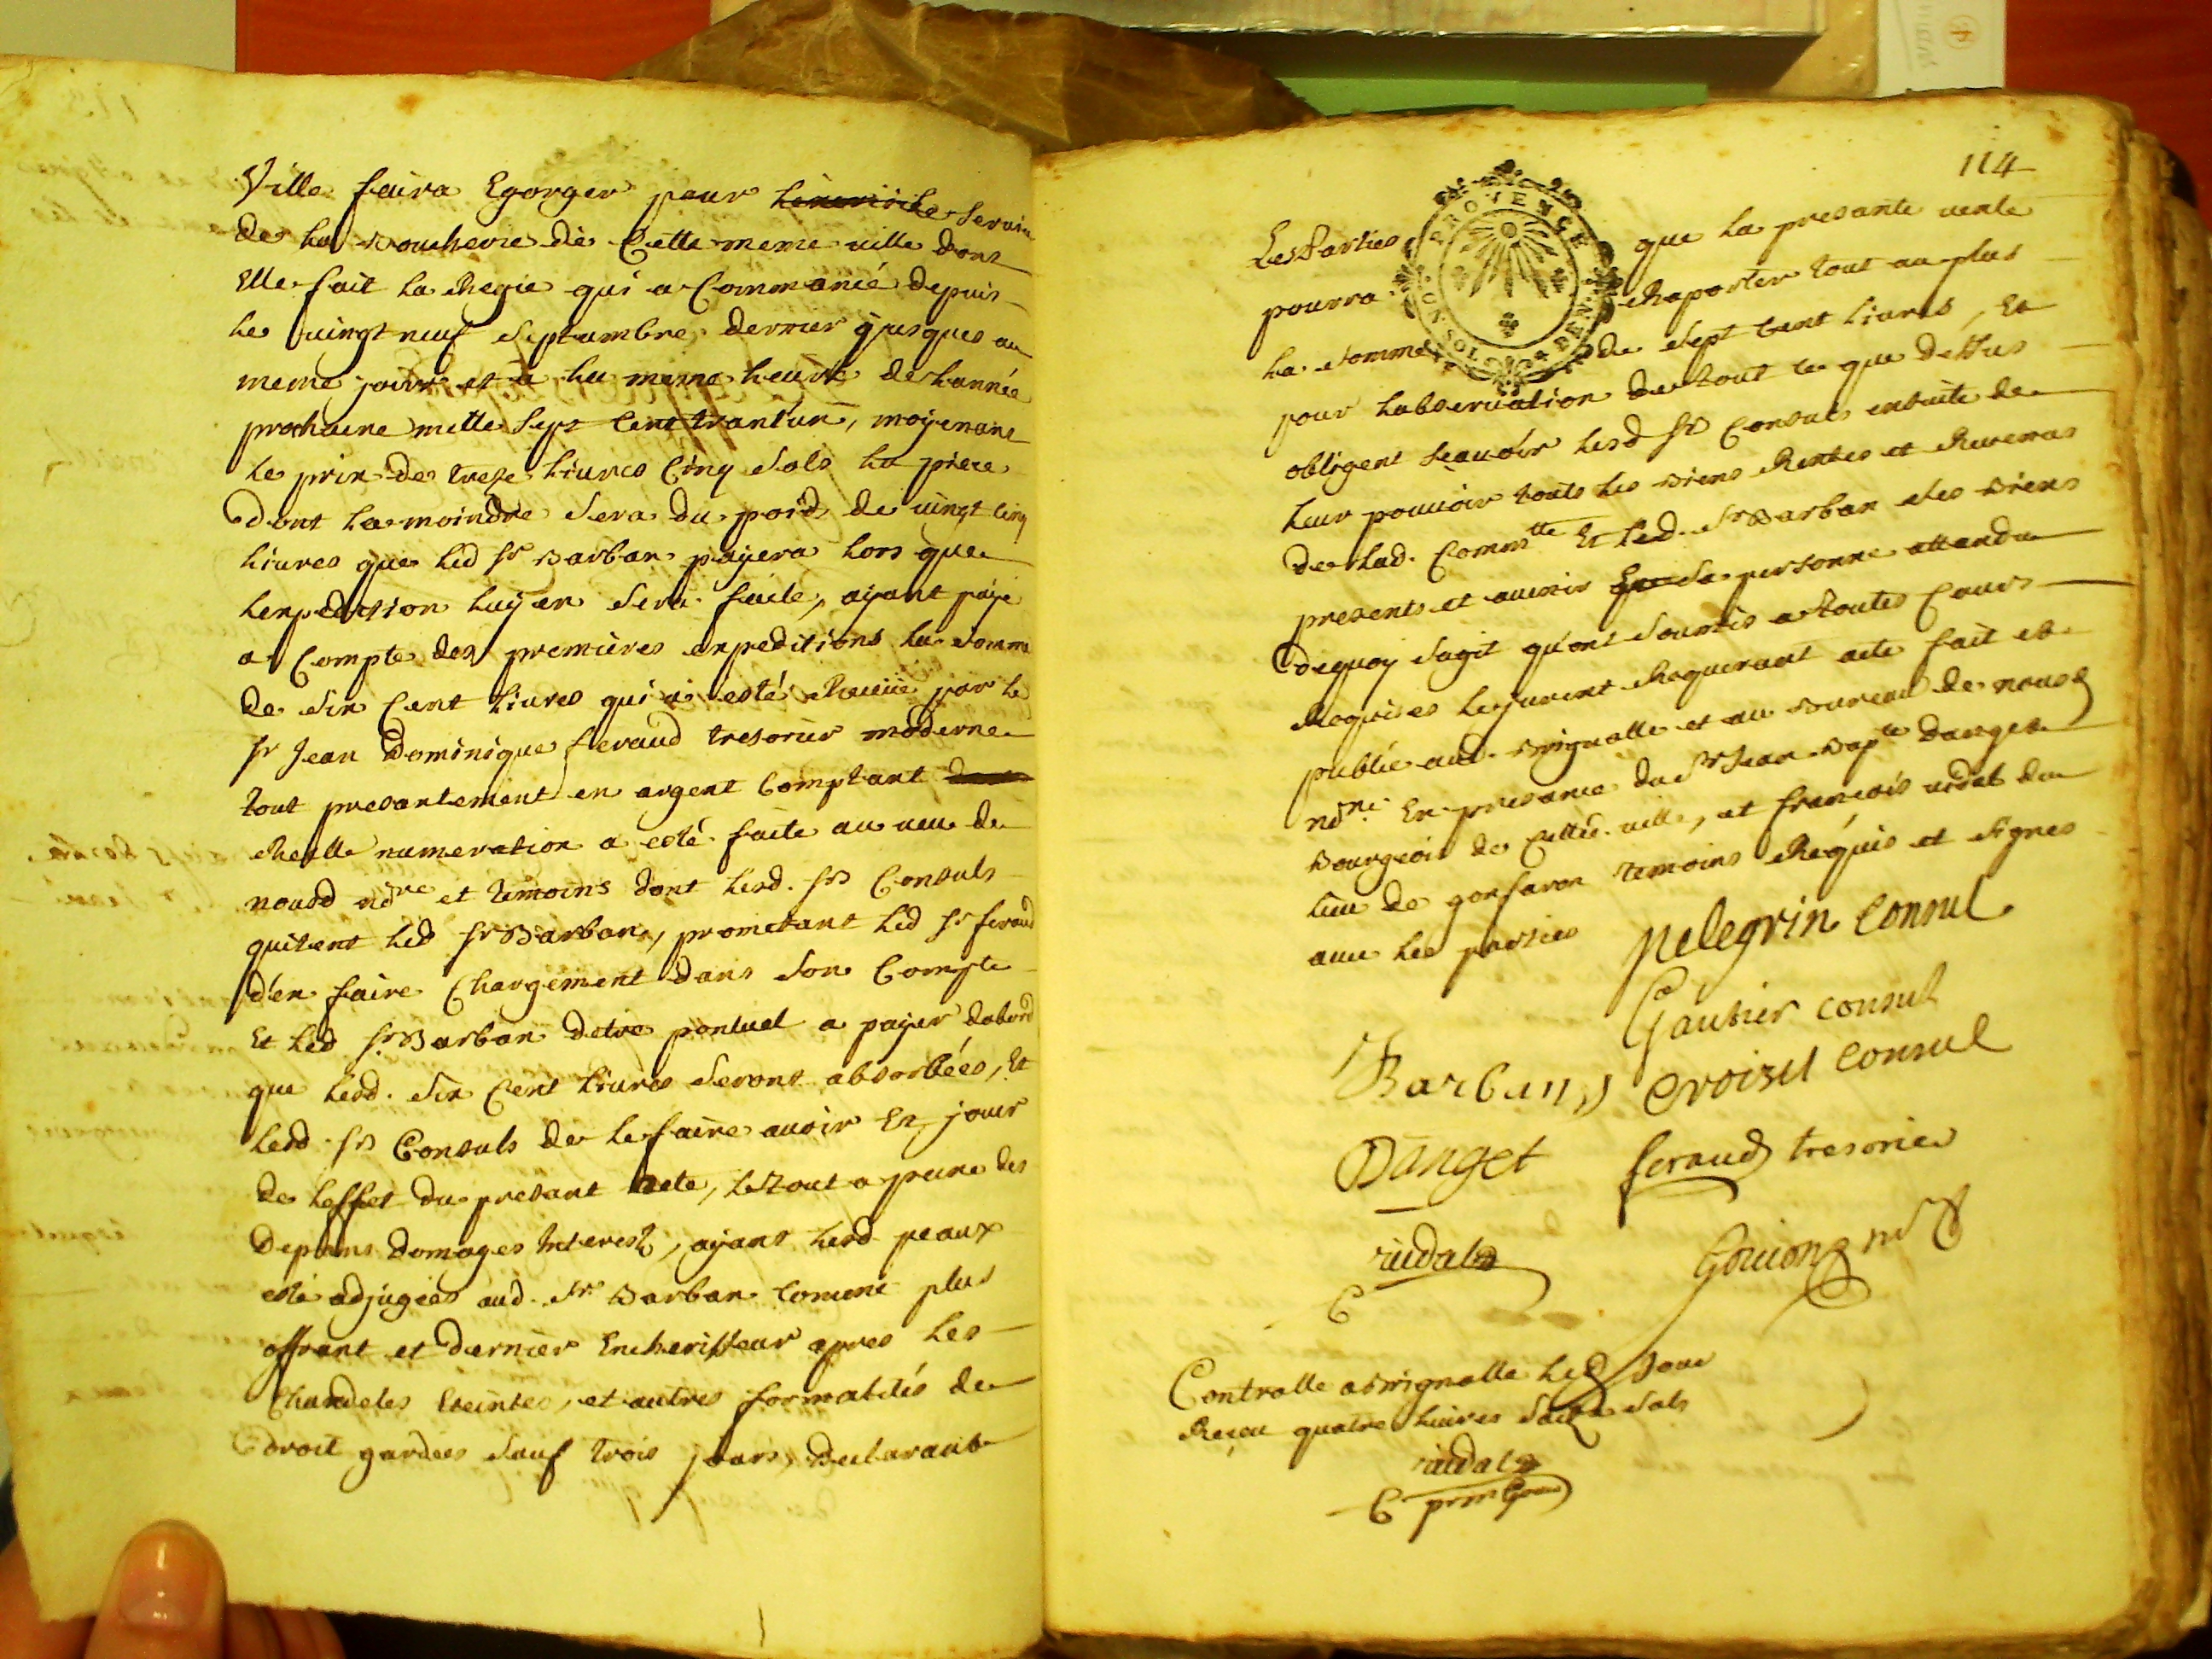 Ville faira Egorger pour service
de la Boucherie de Cette meme ville dont
Elle fait la Regie qui a Commancé depuis
le vingt neuf Septambre dernier jusques au
meme jour et a la meme heure de lannée
prochaine mille Sept Cent trant'un, moyenant
le prix de treze livres Cinq Sols la piece
dont la moindre Sera du poid de vingt cinq
livres que led Sr Barban payera lors que
lexpedition luy en Sera faite, ayant payé
a Compte des premières expeditions la Somme
de Six Cent livres qui a esté Receüe par le
Sr Jean Dominique feraud tresorier moderne
tout presantement en argent Comptant
Reelle numeration a esté faite au veu de
nousd ndre et temoins dont lesd. Srs Consuls
quitent led Sr Barban, prometant led Sr feraud
d'en faire Chargement dans Son Compte
Et led Sr Barban detre pontuel a payer dabord
que lesd. Six Cent livres Seront absorbées, Et
lesd. Srs Consuls de le faire avoir Et jouir
de leffet du presant acte, le tout a peine des
Depans Domages Interests, ayant lesd peaux
esté adjugées aud. Sr Barban Comme plus
offrant et dernier Encherisseur apres les
Chandeles Eteintes, et autres formalités de
droit gardées Sauf trois jours, Declarant
114
Les Parties que la presante vente
pourra Raporter tout au plus
la Somme de Sept Cent livres, Et
pour labservation de tout ce que dessus
obligent Sçavoir lesd Srs Consuls ensuite de
leur pouvoir touts les Biens Rentes et Revenus
de lad. Commtte Et led. Sr Barban Ses Biens
presents et avenir Sa personne attandu
dequoy Sagit qu'ont Soumis a toutes Cours
Requises le jurent Requerant acte fait et
publié aud. Brignolle et au Bureau de nousd
ndre En presance du Sr Jean Bapte Danget
Bourgeois de Cetted. ville, et françois vidal du
lieu de gonfaron temoins Requis et Signés
avec les parties
PROVENCE
pelegrin Consul
Gautier consul
Barban
Croizet consul
Danget
feraud tresorier
vidal
Gouion ndre
Controlle a Brignolle led Jour
Reçeu quatre livres Sols
vidal